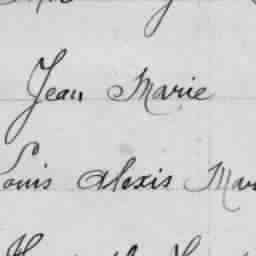 Jean Marie
Louis Alexis Mar